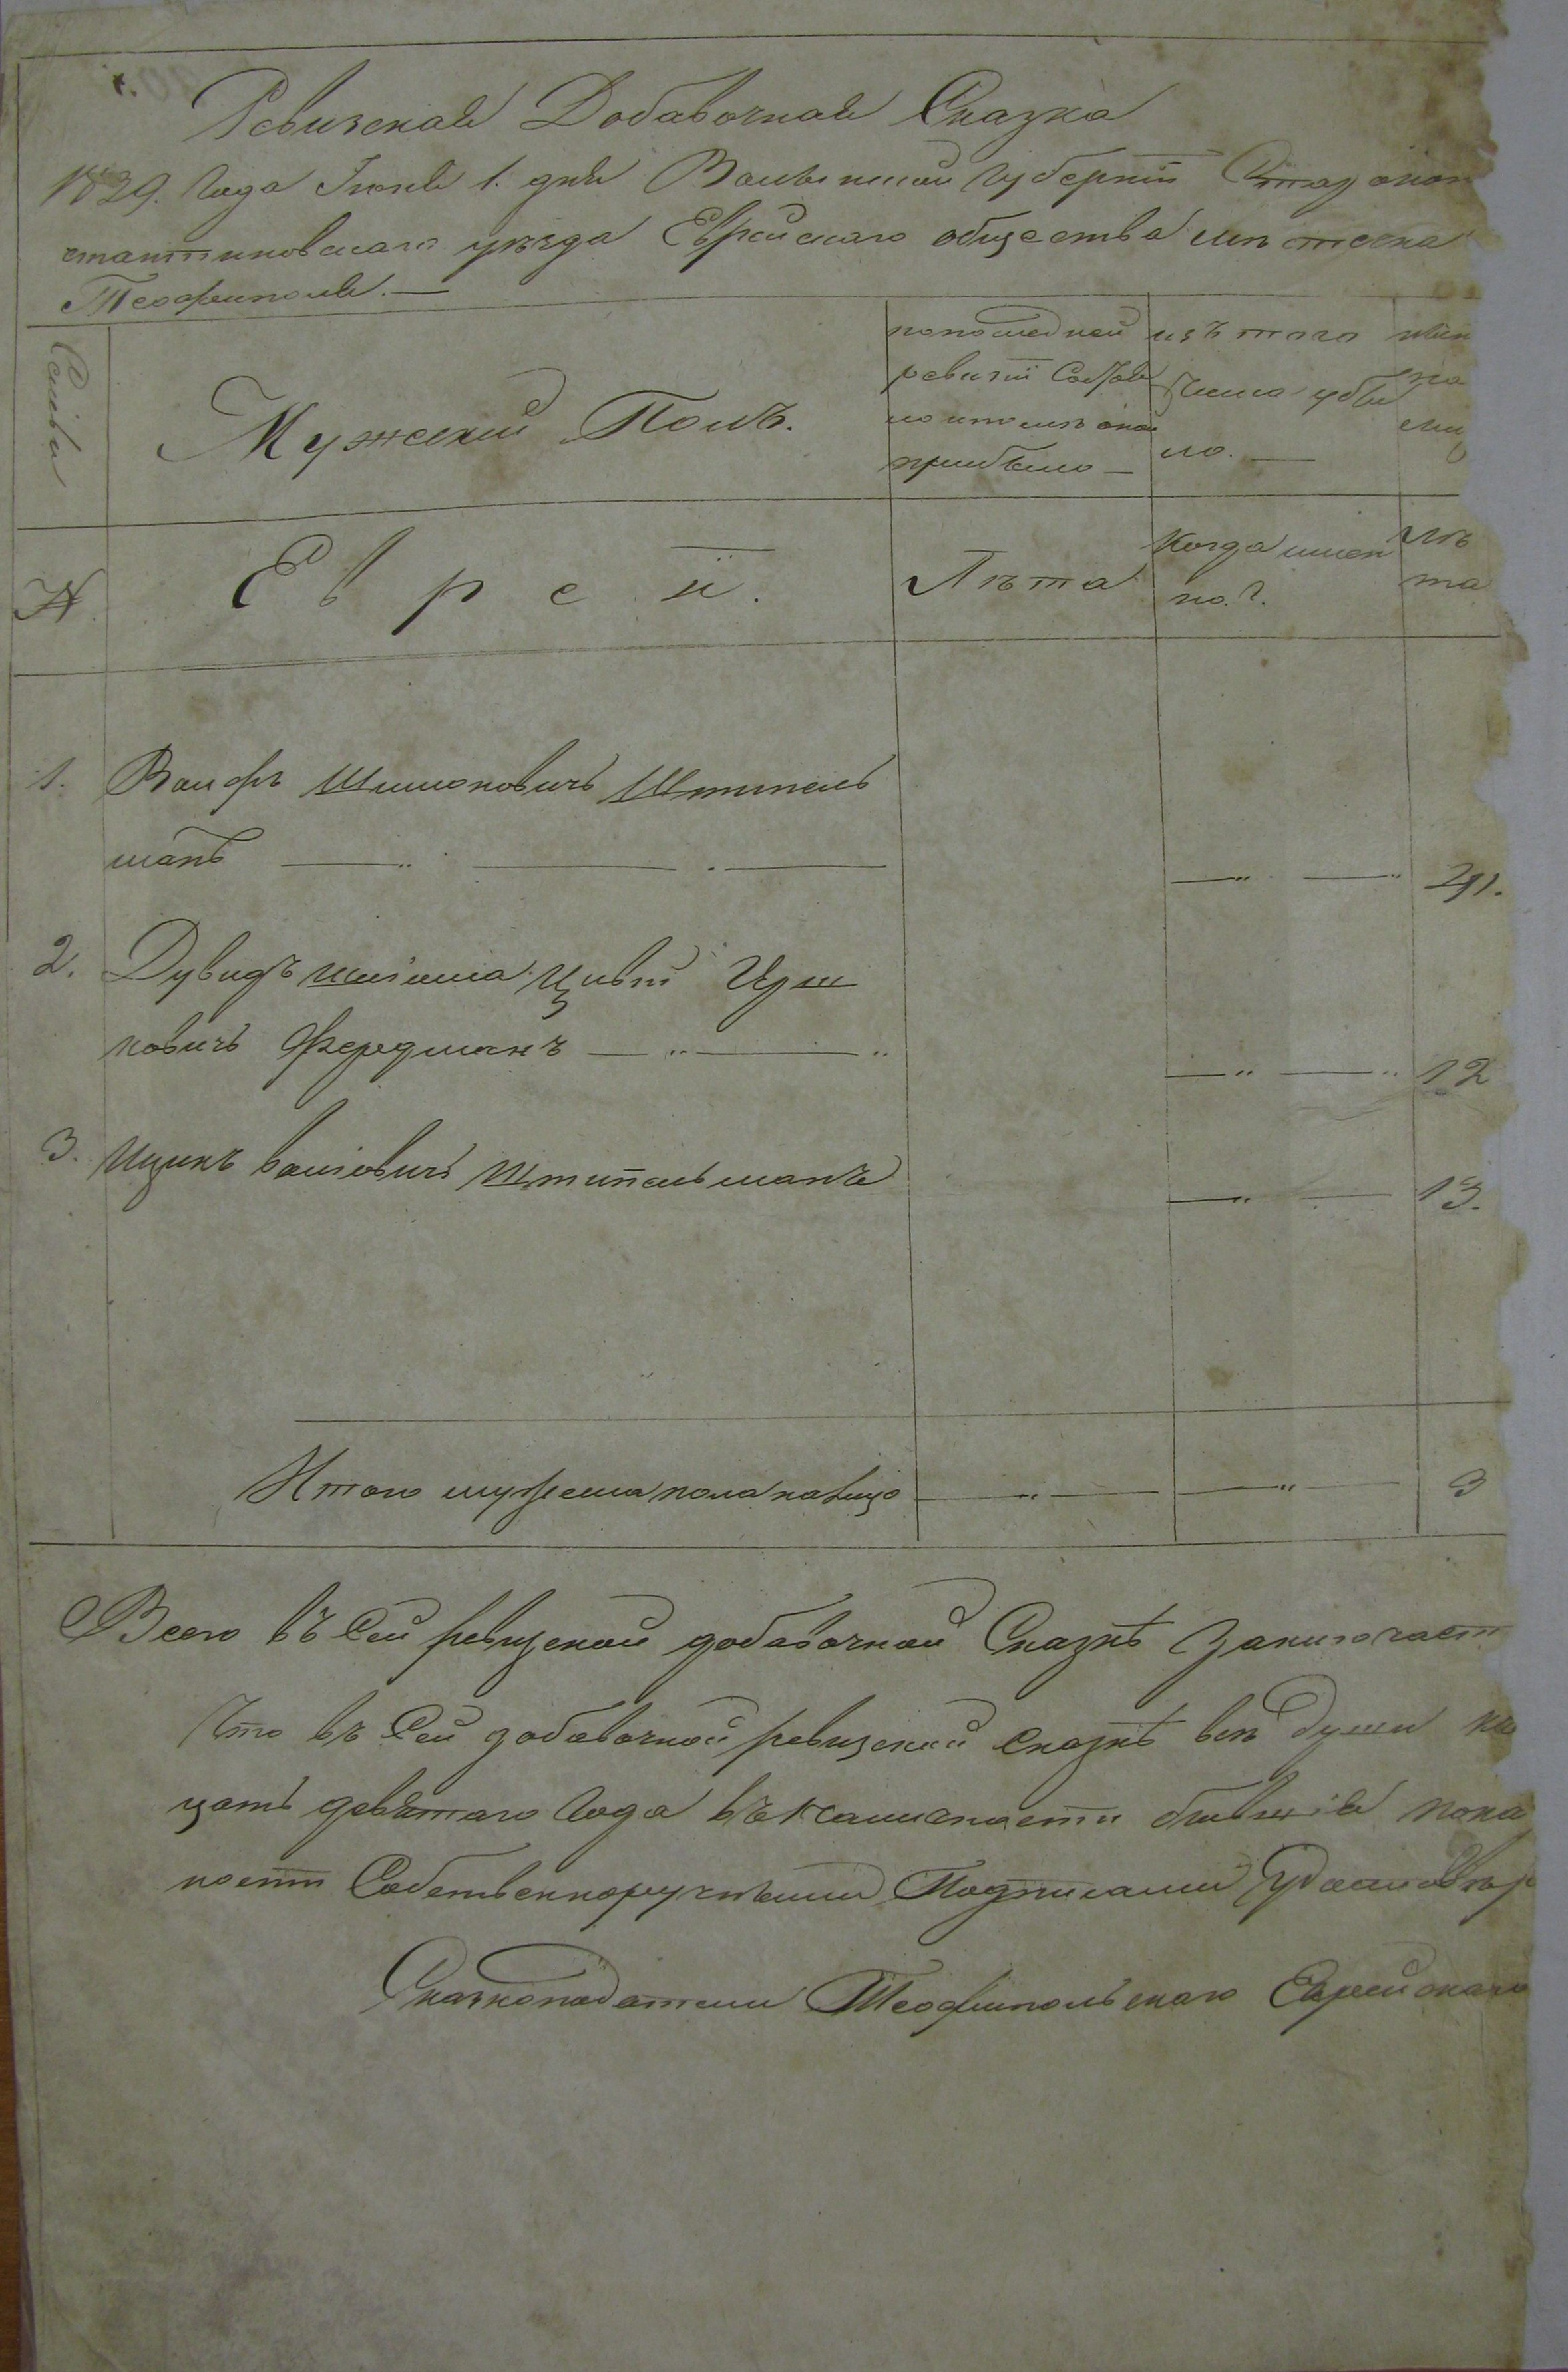 Ревизская Добавочная Сказка
1829. Года Іюня 1. дня Волынской Губерніи Старокон
стантиновскаго уѣзда Еврейскаго общества мѣстечка
Теофиполя.—
Семьи
Мужескій Полъ.
по последней
ревизіи Состоя
ло и после оной
прибыло —
изъ того
числа убы
ло. —
нын
на
лиц
№
Евреи.
Лѣта
Когда имен
но.?
Лѣ
та
1. Волфъ Шимоновичъ Штипель
манъ — „ — . —
— „ — „ 41.
2. Дувидъ Шліома Цивіи Ирш
ковичъ Фердманъ — „ — „
— „ — „ 12
3. Ицикъ Волфовичъ Штипельманъ
— „ — 13.
Итого мужеска пола налицо — „ — — „ — 3
Всего въ Сей ревизской добавочной Сказкѣ Заключает
Что въ Сей добавочной ревизской сказкѣ всѣ души
цать девятаго Года въ наличности бывшія пока
ност Собственноручными Подписами Удостовѣр
Сказкоподатели Теофипольскаго Еврейскаго